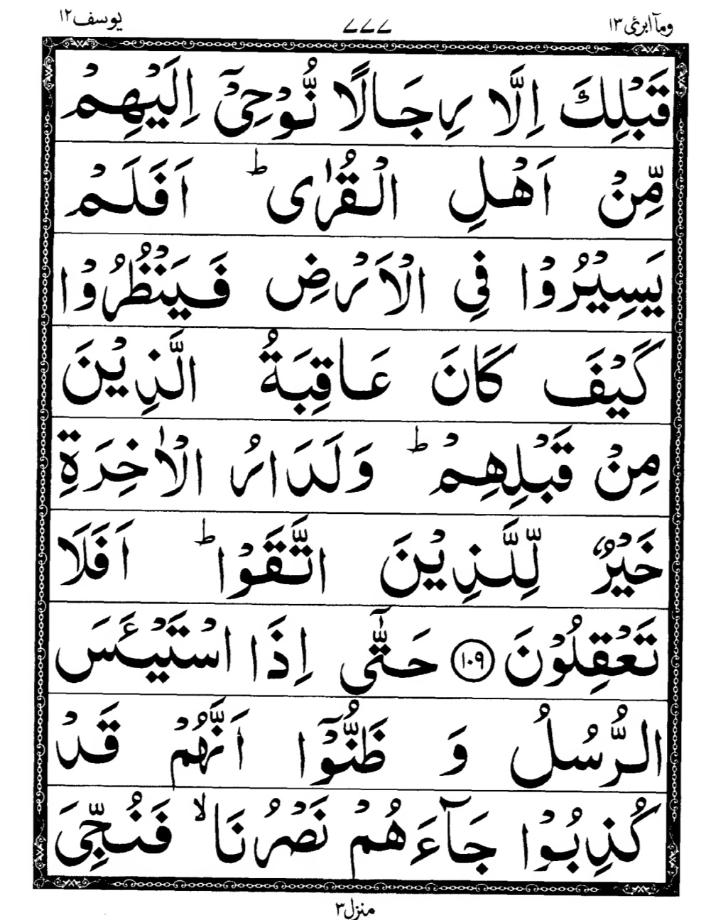 وما ابرئ ١٣ ٧٧٧ يوسف ١٢
قَبْلِكَ اِلَّا رِجَالًا نُّوْحِيْۤ اِلَيْهِمْ
مِّنْ اَهْلِ الْقُرٰى ؕ اَفَلَمْ
يَسِيْرُوْا فِي الْاَرْضِ فَيَنْظُرُوْا
كَيْفَ كَانَ عَاقِبَةُ الَّذِيْنَ
مِنْ قَبْلِهِمْ ؕ وَلَدَارُ الْاٰخِرَةِ
خَيْرٌ لِّلَّذِيْنَ اتَّقَوْا ؕ اَفَلَا
تَعْقِلُوْنَ ١٠٩ حَتّٰۤى اِذَا اسْتَيْـَٔسَ
الرُّسُلُ وَ ظَنُّوْۤا اَنَّهُمْ قَدْ
كُذِبُوْا جَآءَهُمْ نَصْرُنَا ۙ فَنُجِّيَ
منزل ٣